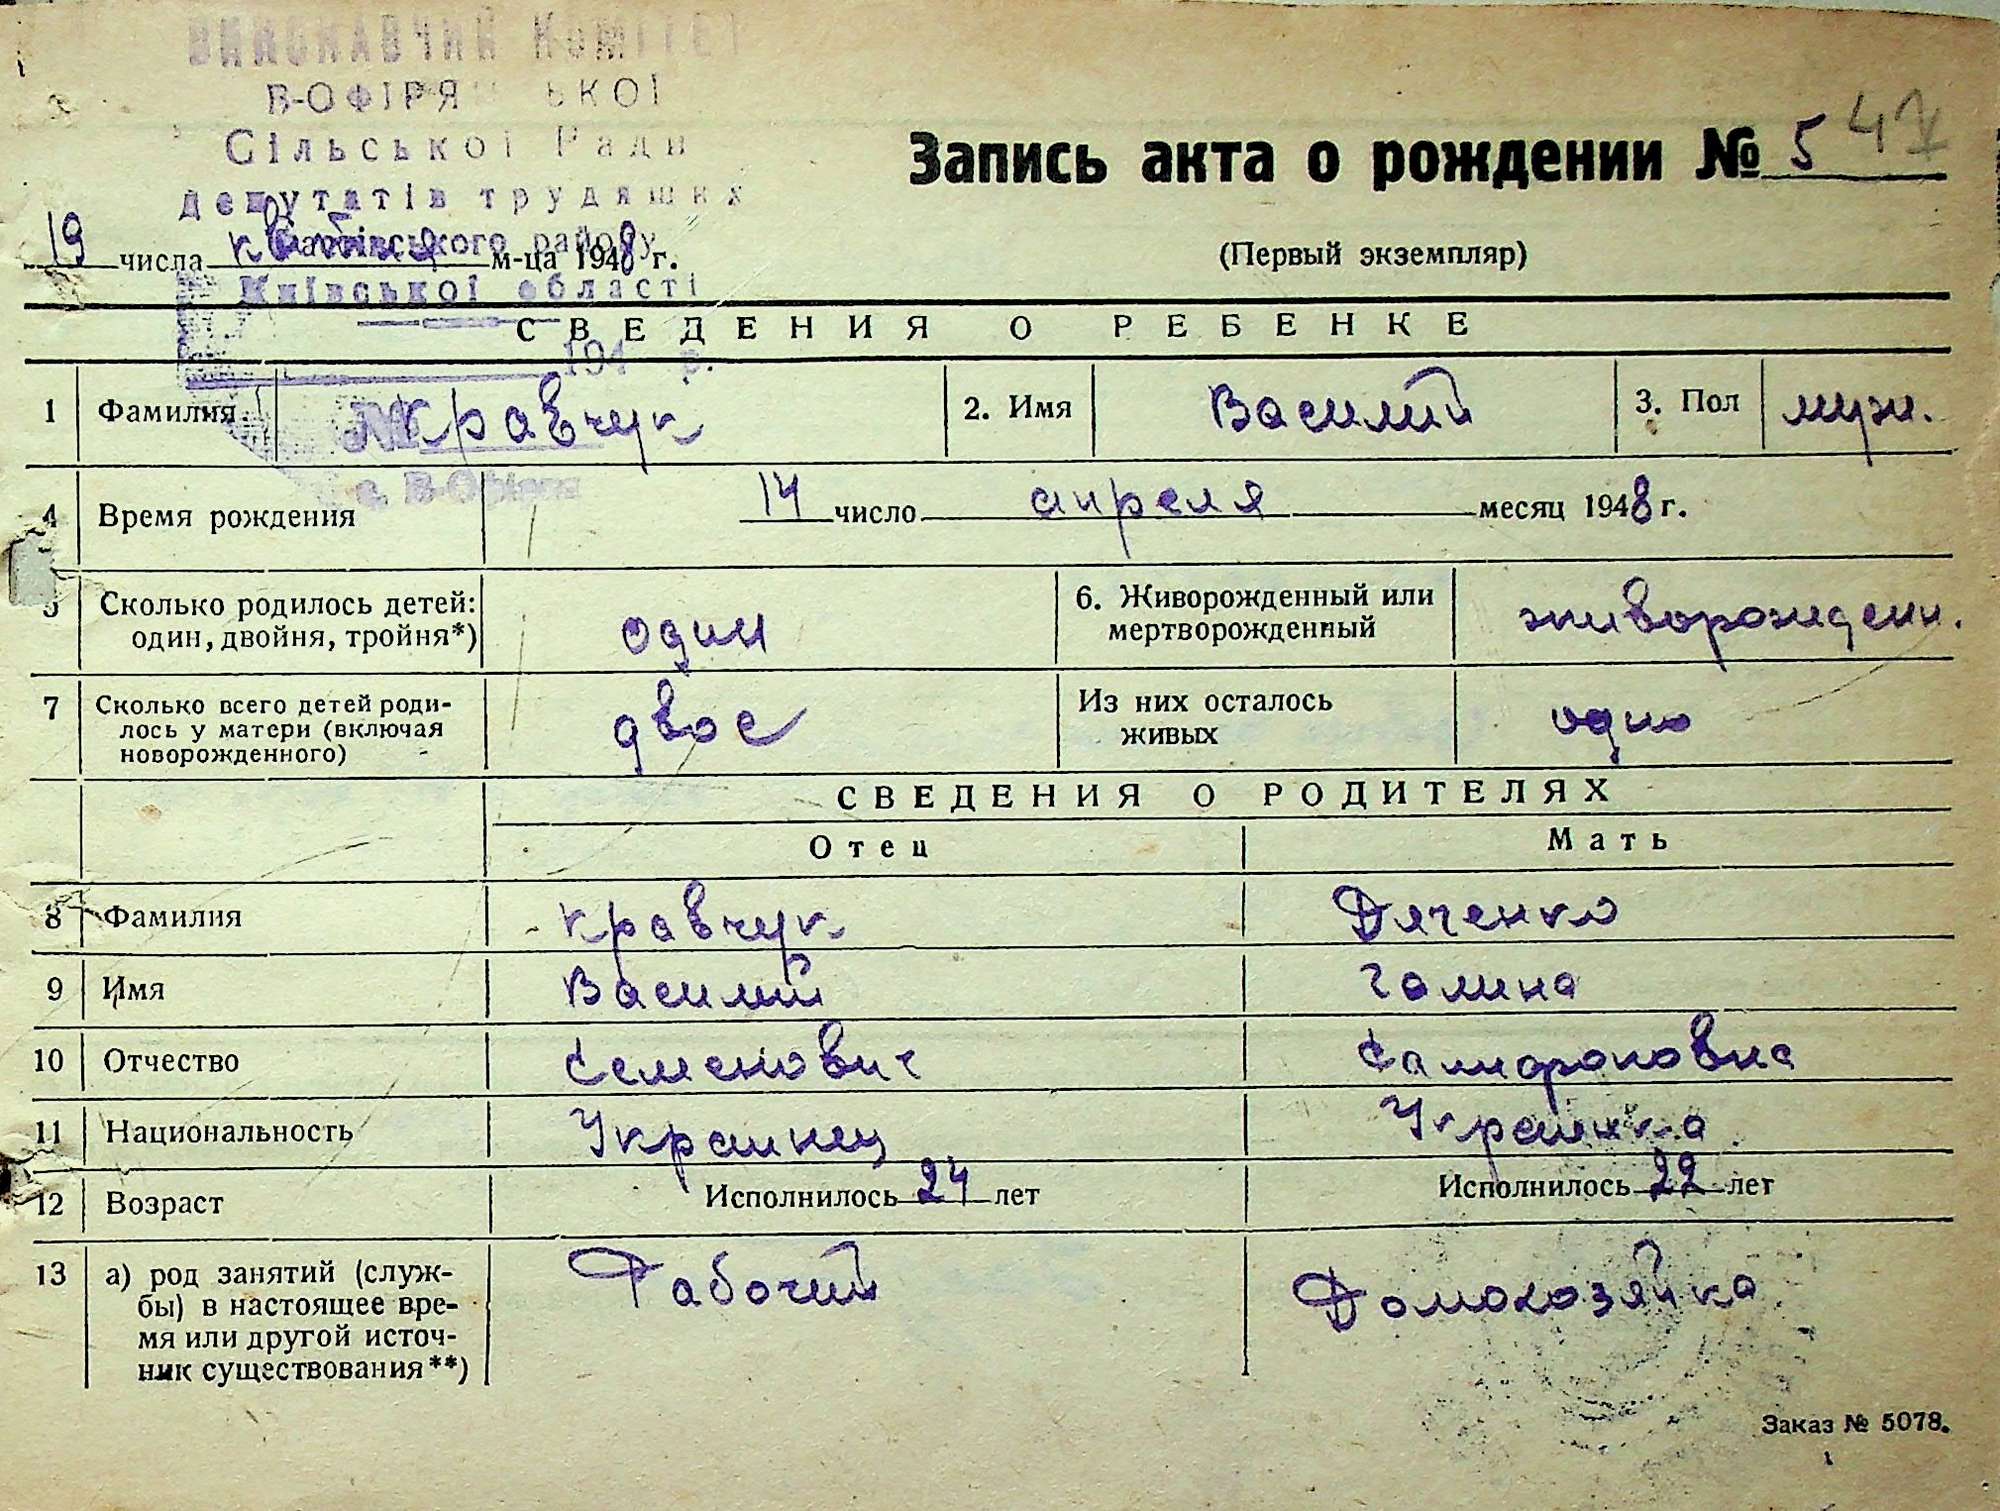 ВИКОНАВЧИЙ КОМІТЕТ
В-ОФІРЯ ЬКОЇ
Сільської Ради
депутатів трудящих
району
Київської області
194 р.
№
с. В-Офірна
Запись акта о рождении № 5 47
19 числа квітня м-ца 1948 г.
(Первый экземпляр)
СВЕДЕНИЯ О РЕБЕНКЕ
1 Фамилия Кравчук 2. Имя Василий 3. Пол муж.
4 Время рождения 14 число апреля месяц 1948 г.
5 Сколько родилось детей: один, двойня, тройня*) один 6. Живорожденный или мертворожденный живорожденн.
7 Сколько всего детей роди-
лось у матери (включая
новорожденного) двое Из них осталось живых одно
СВЕДЕНИЯ О РОДИТЕЛЯХ
Отец Мать
8 Фамилия Кравчук Дяченко
9 Имя Василий Галина
10 Отчество Семенович
11 Национальность Украинец Украинка
12 Возраст Исполнилось 24 лет Исполнилось 22 лет
13 а) род занятий (служ- Рабочий Домохозяйка
бы) в настоящее вре-
мя или другой источ-
ник существования**)
Заказ № 5078.
1